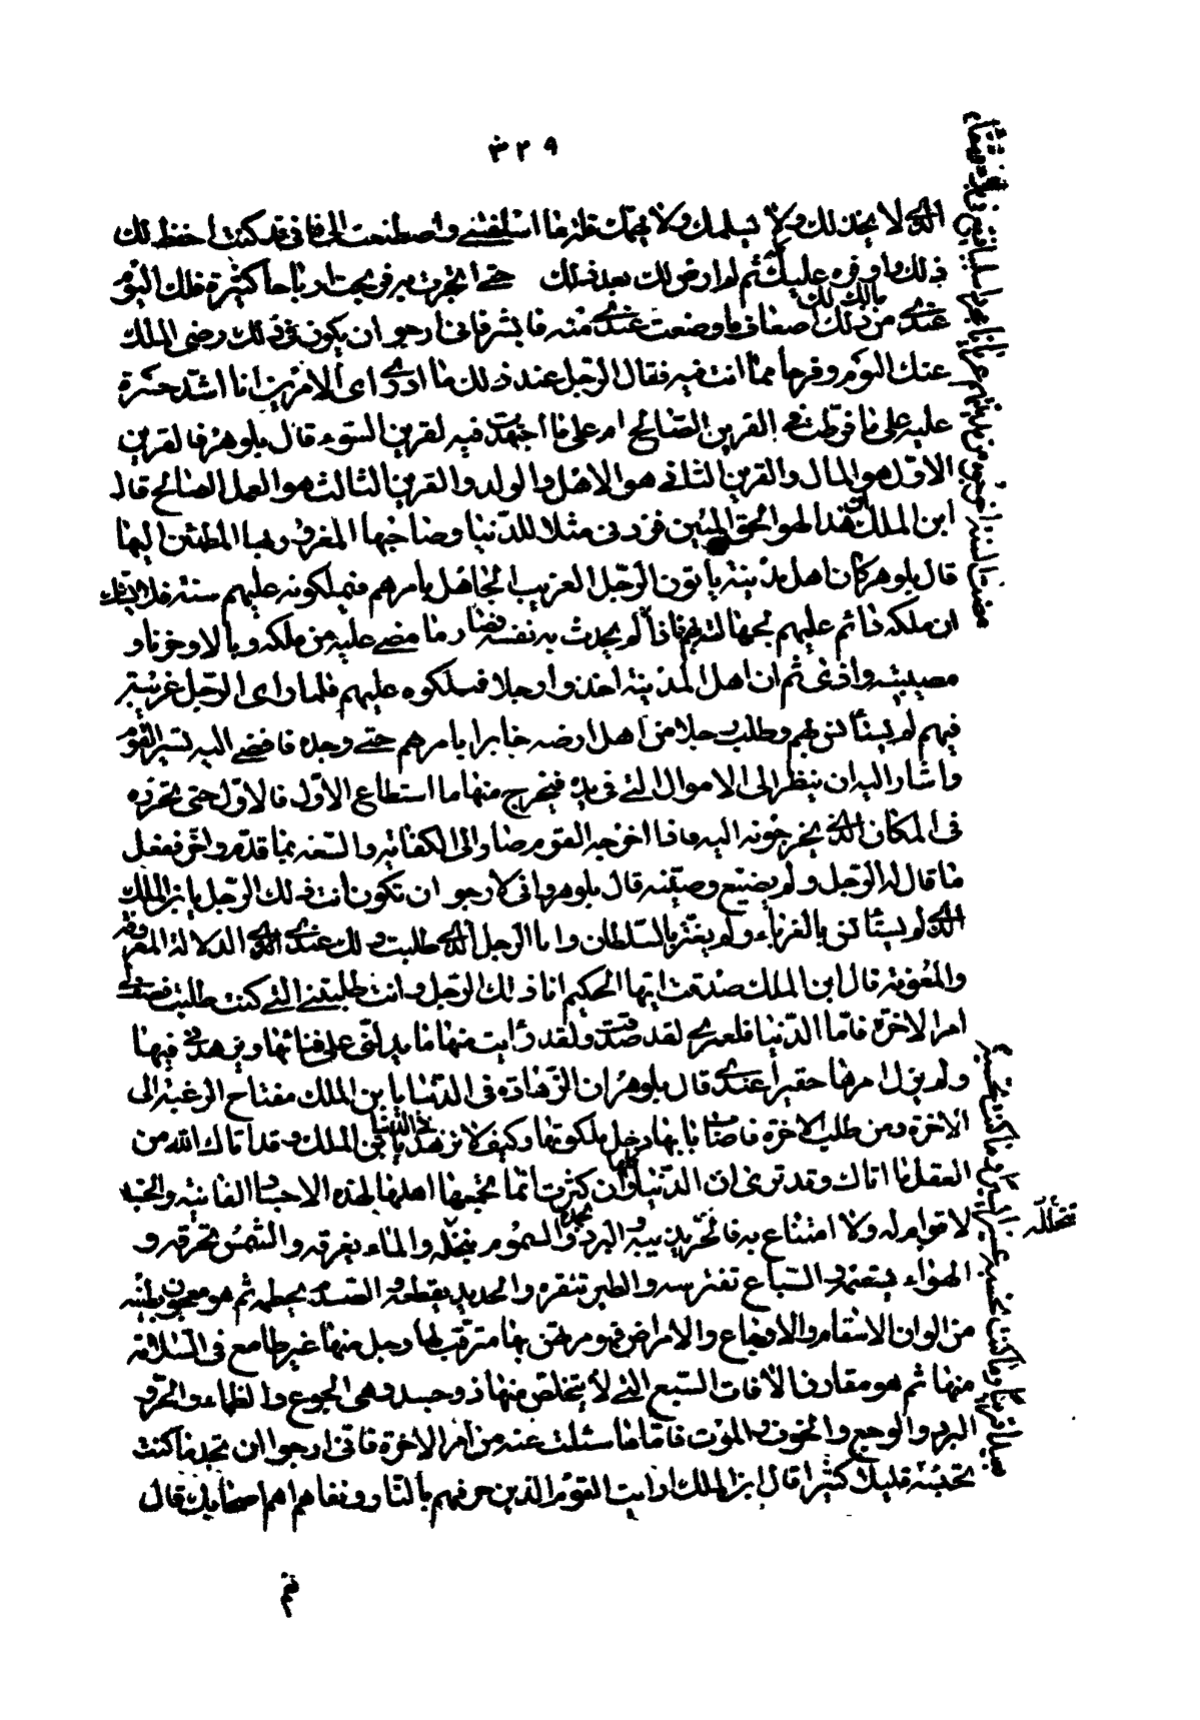 ٣٢٩
الذي لا يخذلك ولا يسلمك ولا يهمك قلة ما اسلفتني واصطنعت الي فاني قد كنت احفظ لك
ذلك واوفره عليك ثم لم ارض لك بعد ذلك حتى اتجرت به فربحت ارباحا كثيرة فلك اليوم
عندي من ذلك اضعاف ما وضعت عندي منه فابشر فاني ارجو ان يكون في ذلك رضى الملك
عنك اليوم وفرجا مما انت فيه فقال الرجل عند ذلك ما ادري اي الامرين انا اشد حسرة
عليه على ما فرطت في القرين الصالح ام على ما اجتهدت فيه لقرين السوء قال بلوهر فالقرين
الاول هو المال والقرين الثاني هو الاهل والولد والقرين الثالث هو العمل الصالح قال
ابن الملك ان هذا لهو الحق المبين فزدني مثلا للدنيا وصاحبها المغرور بها المطمئن اليها
قال بلوهر كان اهل مدينة ياتون الرجل الغريب الجاهل بامرهم فيملكونه عليهم سنة فلا يشك
ان ملكه دائم عليهم لجهالته بهم فاذا
لم يحدث به نفسه فصار ما مضى عليه من ملكه وبالا وخزيا و
مصيبة واذى ثم ان اهل المدينة اخذوا رجلا فملكوه عليهم فلما راى الرجل غربته
فيهم لم يستأنس بهم وطلب رجلا من اهل ارضه خابرا بامرهم حتى وجده فافضى اليه بسر القوم
واشار اليه ان ينظر الى الاموال التي في يده فيخرج منها ما استطاع الاول فالاول حتى يحرزه
في المكان الذي يخرجونه اليه فاذا اخرجه القوم صار الى الكفاية والسعة بما قدم واحرز ففعل
ما قال له الرجل ولم يضيع وصيته قال بلوهر واني لارجو ان تكون انت ذلك الرجل يا بن الملك
الذي لم يستأنس بالغرباء ولم يغتر بالسلطان وانا الرجل الذي طلبت ولك عندي الدلالة والمعرفة
والمعونة قال ابن الملك صدقت ايها الحكيم انا ذلك الرجل وانت طلبتي التي كنت طلبت فصف لي
امر الاخرة فاما الدنيا فلعمري لقد صدقت ولقد رأيت منها ما يدلني على فنائها ويزهدني فيها
ولم يزل امرها حقيرا عندي قال بلوهر ان الزهادة في الدنيا يا بن الملك مفتاح الرغبة الى
الاخرة ومن طلب الاخرة فاصاب بابها دخل ملكوتها وكيف لا تزهد في الدنيا يا بن الملك وقد اتاك الله من
العقل ما اتاك وقد ترى ان الدنيا كلها وان كثرت انما يجمعها اهلها لهذه الاجساد الفانية والجسد
لا قوام له ولا امتناع به فالحر يذيبه والبرد يجمده والسموم يتخلله والماء يغرقه والشمس تحرقه و
الهواء يسقمه والسباع تفترسه والطير تنقره والحديد يقطعه والصدم يحطمه ثم هو معجون بطينة
من الوان الاسقام والاوجاع والامراض فهو مرتهن بها مترقب لها وجل منها غير طامع في السلامة
منها ثم هو مقارن الافات السبع التي لا يتخلص منها ذو جسد وهي الجوع والظماء والحر و
البرد والوجع والخوف والموت فاما ما سئلت عنه من امر الاخرة فاني ارجو ان تجد ما كنت
تحسبه قليلا كثيرا قال ابن الملك ارايت القوم الذين حرقهم بالنار ونفاهم اهم اصحابك قال
تتخلله